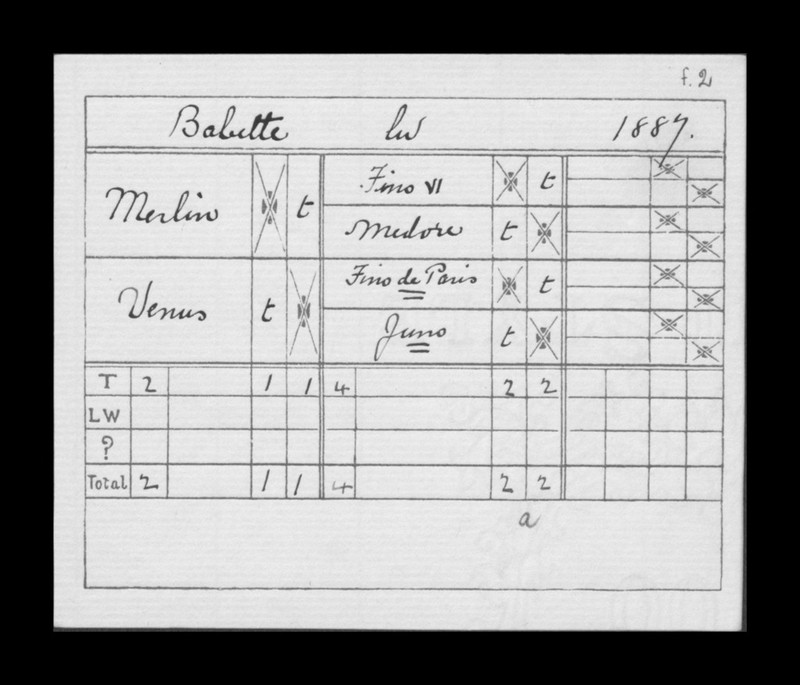 f. 2
Babette lw 1887.
Merlin t Fino VI t
Medore t
Venus t Fino de Paris t
Juno t
T 2 1 1 4 2 2
LW
?
Total 2 1 1 4 2 2
a